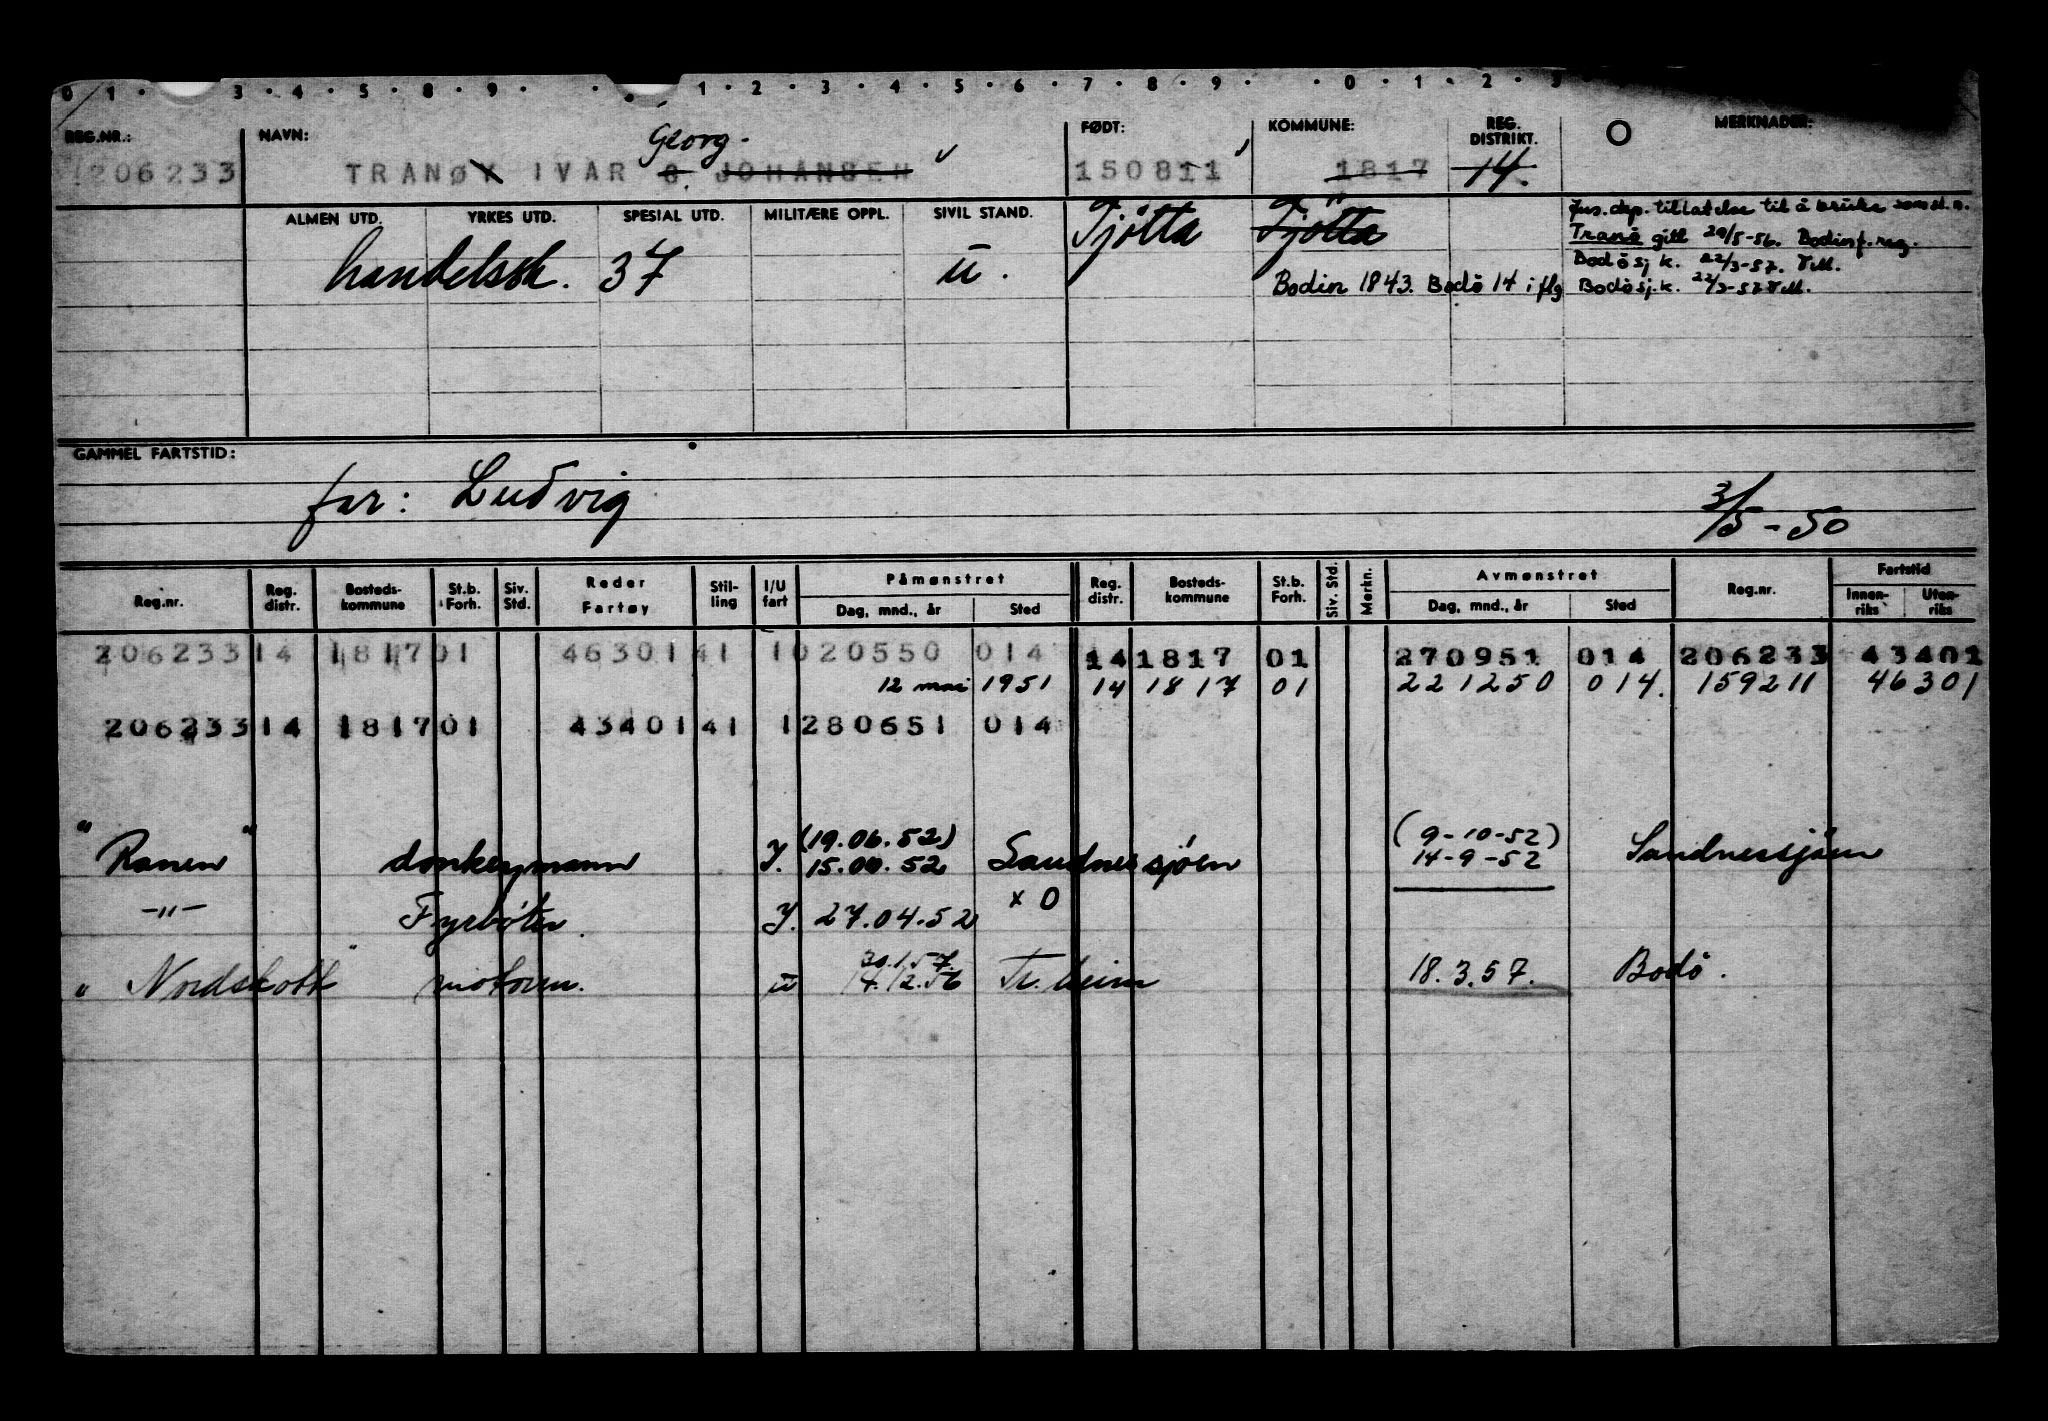 0 1 · 3 · 4 · 5 · 8 · 9 · · · 1 · 2 · 3 · 4 · 5 · 6 · 7 · 8 · 9 · · 0 · 1 · 2 · 3
REG.NR.: NAVN: Georg. FØDT: KOMMUNE: REG. DISTRIKT. MERKNADER:
206233 TRANØY IVAR G. JOHANSEN 150811 1817 14.
ALMEN UTD. YRKES UTD. SPESIAL UTD. MILITÆRE OPPL. SIVIL STAND. Tjötta Tjötta Jus.dep. tillatelse til å bruke som sl.n.
handelssk. 37 u. Tranö gitt 29/5-56. Bodin f.reg.
Bodö sj.k. 22/3-57. VM.
Bodin 1843. Bodö 14 i flg Bodö sj.k. 22/3-57 VM.
GAMMEL FARTSTID:
far: Ludvig 3/5-50
Reg.nr. Reg. distr. Bosteds-kommune St.b. Forh. Siv. Std. Reder Fartøy Stil-ling I/U fart Påmønstret Dag, mnd., år Sted Reg. distr. Bosteds-kommune St.b. Forh. Siv. Std. Merkn. Avmønstret Dag, mnd., år Sted Reg.nr. Fartstid Innen-riks Uten-riks
206233 14 1817 01 46301 41 1 020550 014 14 1817 01 270951 014 206233 43401
12 mai 1951 14 1817 01 221250 014. 159211 46301
206233 14 1817 01 43401 41 1 280651 014
(19.06.52) (9-10-52)
"Ranen" donkeymann I. 15.04.52 Sandnessjøen 14-9-52 Sandnessjöen
-"- Fyrbøter I. 27.04.52 x O
30.1.57.
"Nordskott" motorm. u 14.12.56 Tr.heim 18.3.57. Bodö.